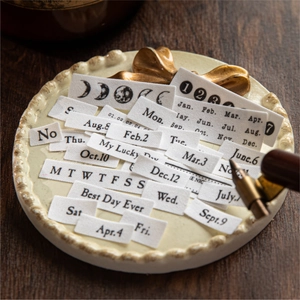 1 2 3
Jan. Feb.
Mar. Apr.
May. Jun. Jul. Aug.
7
S
Aug.8
Mon.
No
Feb.2
Tue.
Thu.
My Lucky Day
Oct.10
Mar.3
June.6
M T W T F S S
Dec.12
No
Best Day Ever
Wed.
July.
Sat.
Sept.9
Apr.4
Fri.